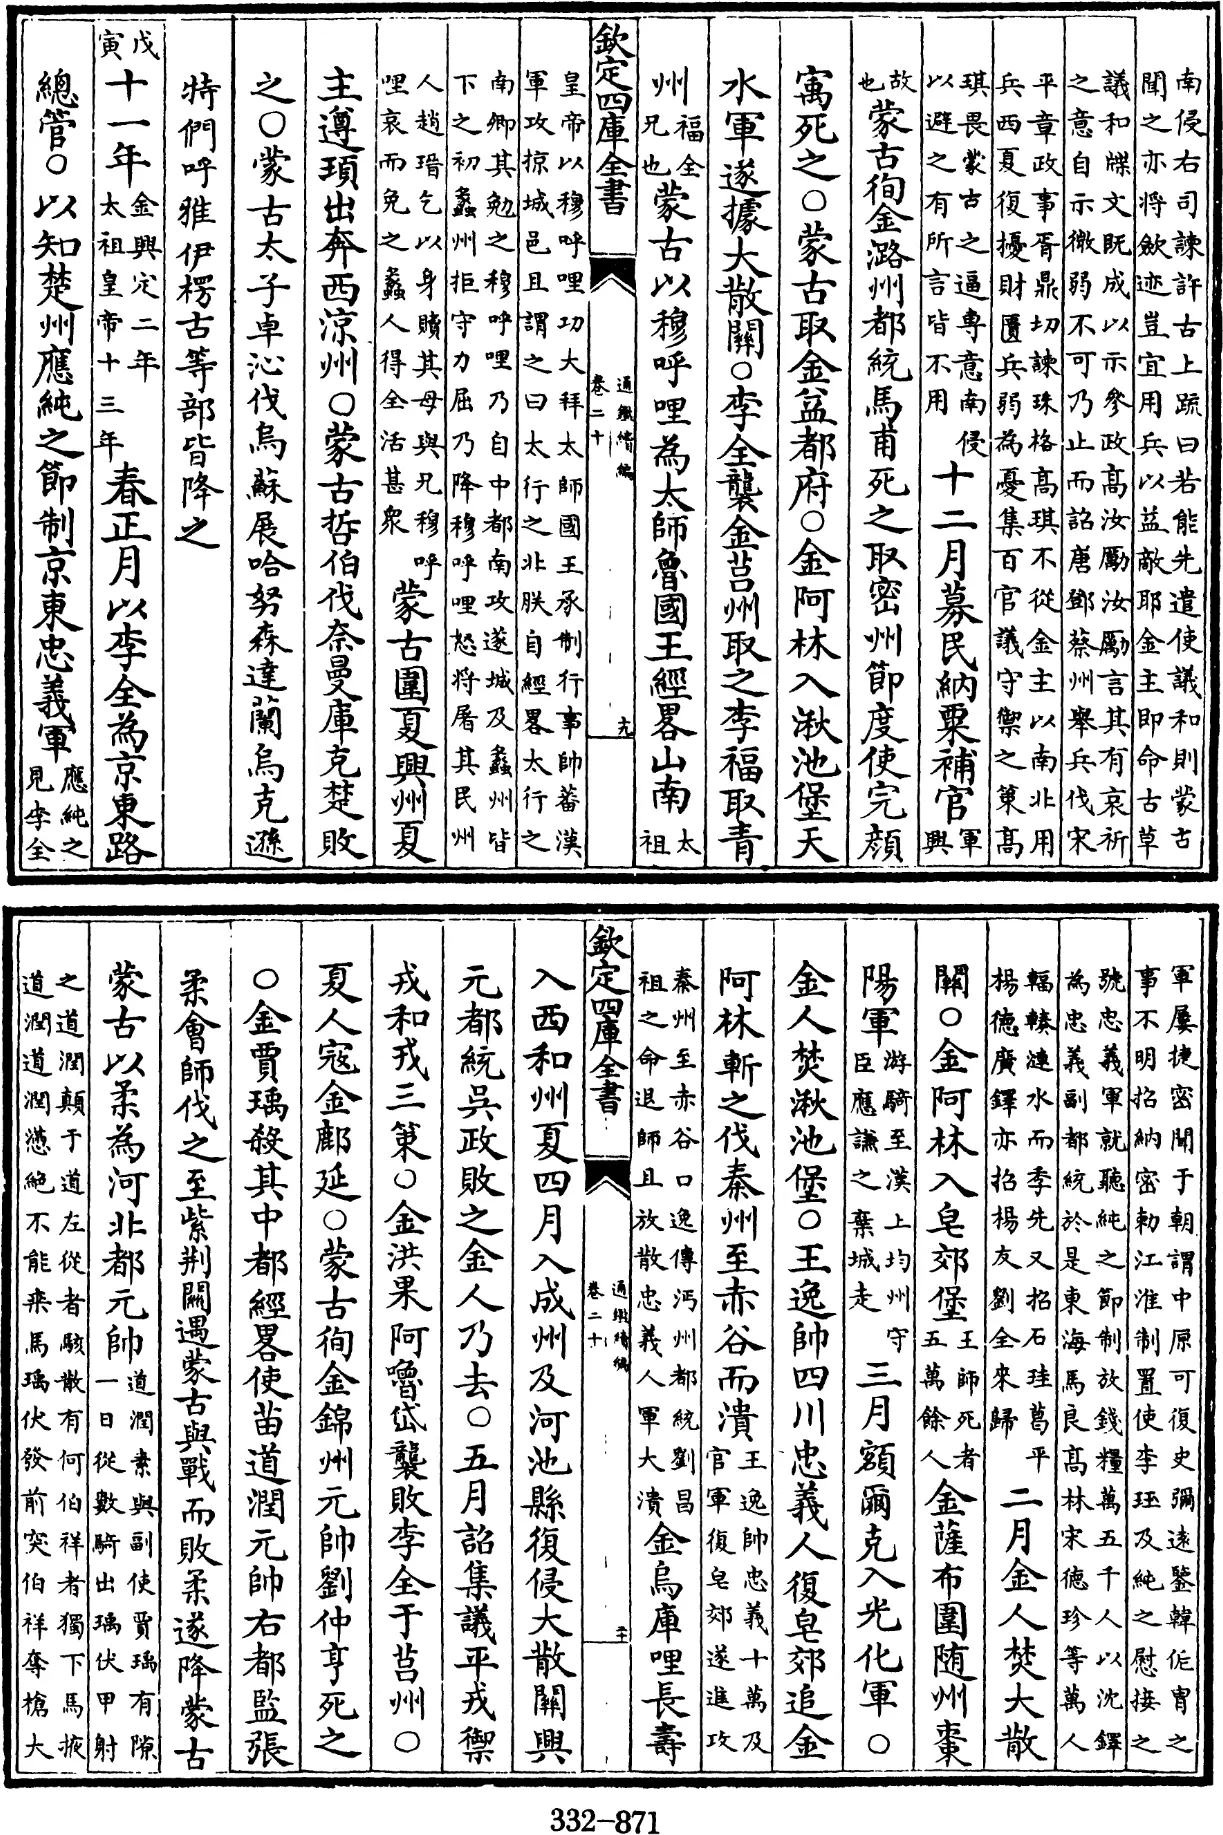 南侵右司諫許古上疏曰若能先遣使議和則蒙古
聞之亦將斂迹豈宜用兵以益敵耶金主即命古草
議和牒文既成以示參政高汝勵汝勵言其有哀祈
之意自示微弱不可乃止而詔唐鄧蔡州舉兵伐宋
平章政事胥鼎切諫珠格高琪不從金主以南北用
兵西夏復擾財匱兵弱為憂集百官議守禦之策高
琪畏蒙古之逼專意南侵
以避之有所言皆不用
十二月募民納粟補官
軍興
故也
蒙古徇金潞州都統馬甫死之取密州節度使完顔
寓死之○蒙古取金益都府○金阿林入湫池堡天
水軍遂據大散關○李全襲金莒州取之李福取青
州
福全兄也
蒙古以穆呼哩為太師魯國王經畧山南
太祖
欽定四庫全書
通鑑續編
卷二十
十九
皇帝以穆呼哩功大拜太師國王承制行事帥蕃漢
軍攻掠城邑且謂之曰太行之北朕自經畧太行之
南卿其勉之穆呼哩乃自中都南攻遂城及蠡州皆
下之初蠡州拒守力屈乃降穆呼哩怒將屠其民州
人趙瑨乞以身贖其母與兄穆呼
哩哀而免之蠡人得全活甚衆
蒙古圍夏興州夏
主遵頊出奔西涼州○蒙古哲伯伐奈曼庫克楚敗
之○蒙古太子卓沁伐烏蘇展哈努森達蘭烏克遜
特們呼雅伊楞古等部皆降之
戊寅
十一年
金興定二年
太祖皇帝十三年
春正月以李全為京東路
總管○以知楚州應純之節制京東忠義軍
應純之
見李全
軍屢捷密聞于朝謂中原可復史彌遠鑒韓侂冑之
事不明招納密勅江淮制置使李珏及純之慰接之
號忠義軍就聽純之節制放錢糧萬五千人以沈鐸
為忠義副都統於是東海馬良高林宋德珍等萬人
輻輳漣水而季先又招石珪葛平
楊德廣鐸亦招楊友劉全來歸
二月金人焚大散
關○金阿林入皂郊堡
王師死者
五萬餘人
金薩布圍随州棗
陽軍
游騎至漢上均州守
臣應謙之棄城走
三月額爾克入光化軍○
金人焚湫池堡○王逸帥四川忠義人復皂郊追金
阿林斬之伐秦州至赤谷而潰
王逸帥忠義十萬及
官軍復皂郊遂進攻
欽定四庫全書
通鑑續編
卷二十
二十
秦州至赤谷口逸傳沔州都統劉昌
祖之命退師且放散忠義人軍大潰
金烏庫哩長壽
入西和州夏四月入成州及河池縣復侵大散關興
元都統吳政敗之金人乃去○五月詔集議平戎禦
戎和戎三策○金洪果阿嚕岱襲敗李全于莒州○
夏人寇金鄜延○蒙古徇金錦州元帥劉仲亨死之
○金賈瑀殺其中都經畧使苗道潤元帥右都監張
柔會師伐之至紫荆關遇蒙古與戰而敗柔遂降蒙古
蒙古以柔為河北都元帥
道潤素與副使賈瑀有隙
一日從數騎出瑀伏甲射
之道潤顛于道左從者駭散有何伯祥者獨下馬掖
道潤道潤憊絶不能乘馬瑀伏發前突伯祥奪槍大
332-871